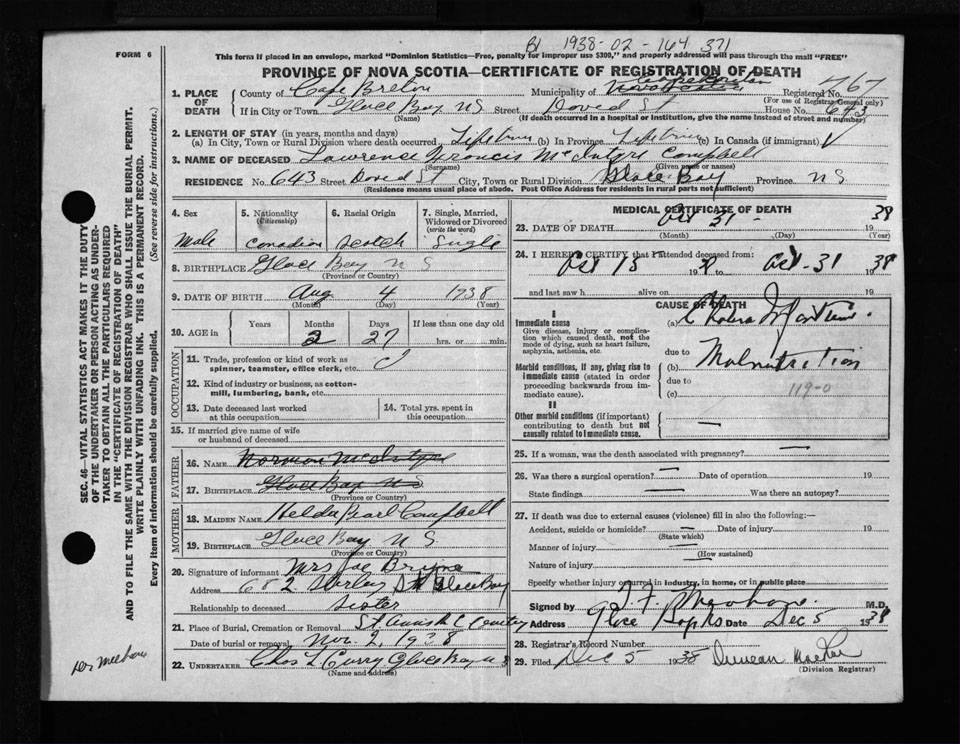 B1 1938-02-164 371
FORM 6
This form if placed in an envelope, marked "Dominion Statistics—Free, penalty for improper use $300," and properly addressed will pass through the mail "FREE"
PROVINCE OF NOVA SCOTIA—CERTIFICATE OF REGISTRATION OF DEATH
1. PLACE OF DEATH
County of Cape Breton Municipality of Registered No. 767
(For use of Registrar General only)
If in City or Town Glace Bay NS Street House No. 643
(Name) (If death occurred in a hospital or institution, give the name instead of street and number)
2. LENGTH OF STAY (in years, months and days)
(a) In City, Town or Rural Division where death occurred Lifetime (b) In Province Lifetime (c) In Canada (if immigrant)
3. NAME OF DECEASED Lawrence Francis McIntyre Campbell
(Surname) (Given name or names)
RESIDENCE No. 643 Street City, Town or Rural Division Glace Bay Province NS
(Residence means usual place of abode. Post Office Address for residents in rural parts not sufficient)
4. Sex
Male
5. Nationality
(Citizenship)
Canadian
6. Racial Origin
Scotch
7. Single, Married, Widowed or Divorced
(write the word)
Single
8. BIRTHPLACE Glace Bay NS
(Province or Country)
9. DATE OF BIRTH Aug 4 1938
(Month) (Day) (Year)
10. AGE in
Years Months Days If less than one day old
2 27 hrs. or min.
OCCUPATION
11. Trade, profession or kind of work as spinner, teamster, office clerk, etc.
12. Kind of industry or business, as cotton-mill, lumbering, bank, etc.
13. Date deceased last worked at this occupation
14. Total yrs. spent in this occupation
15. If married give name of wife or husband of deceased
FATHER
16. NAME Norman McIntyre
17. BIRTHPLACE Glace Bay NS
(Province or Country)
MOTHER
18. MAIDEN NAME Helda Pearl Campbell
19. BIRTHPLACE Glace Bay NS
(Province or Country)
20. Signature of informant Mrs Joe
Address 682 St Glace Bay
Relationship to deceased Sister
21. Place of Burial, Cremation or Removal St Anns R C Cemetery
Date of burial or removal Nov 2, 1938
22. UNDERTAKER Chas L Curry Glace Bay NS
(Name and address)
MEDICAL CERTIFICATE OF DEATH
23. DATE OF DEATH Oct 31 - 38
(Month) (Day) (Year)
24. I HEREBY CERTIFY that I attended deceased from:
Oct 18 19 to Oct-31 1938
and last saw h alive on 19
CAUSE OF DEATH
I
Immediate cause
Give disease, injury or complication which caused death, not the mode of dying, such as heart failure, asphyxia, asthenia, etc.
(a) Cholera Infantum.
due to
Morbid conditions, if any, giving rise to immediate cause (stated in order proceeding backwards from immediate cause).
(b) Malnutrition
due to
(c) 119-0
II
Other morbid conditions (if important) contributing to death but not causally related to immediate cause.
25. If a woman, was the death associated with pregnancy? —
26. Was there a surgical operation? — Date of operation 19
State findings — Was there an autopsy?
27. If death was due to external causes (violence) fill in also the following:—
Accident, suicide or homicide? — Date of injury 19
(State which)
Manner of injury —
(How sustained)
Nature of injury
Specify whether injury occurred in industry, in home, or in public place
Signed by M.D.
Address Glace Bay NS Date Dec 5 1938
28. Registrar's Record Number
29. Filed Dec 5 1938 Duncan
(Division Registrar)
SEC. 46—VITAL STATISTICS ACT MAKES IT THE DUTY OF THE UNDERTAKER OR PERSON ACTING AS UNDERTAKER TO OBTAIN ALL THE PARTICULARS REQUIRED IN THE "CERTIFICATE OF REGISTRATION OF DEATH" AND TO FILE THE SAME WITH THE DIVISION REGISTRAR WHO SHALL ISSUE THE BURIAL PERMIT.
WRITE PLAINLY WITH UNFADING INK. THIS IS A PERMANENT RECORD.
Every item of information should be carefully supplied. (See reverse side for instructions.)